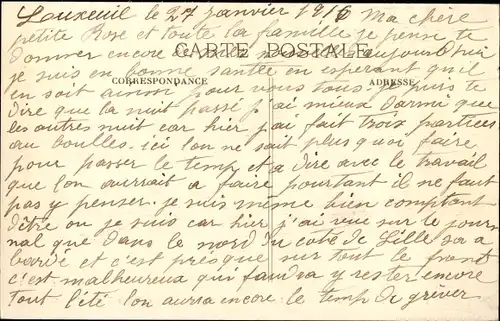 Luxeuil le 27 janvier 1916 Ma chère
petite Rose et toute la famille je pense te
CARTE POSTALE
donner encore de mes aujourd'hui
je suis en bonne santée en esperant qu'il
CORRESPONDANCE
ADRESSE
en soit ainsi pour vous tous je puis te
dire que la nuit passé j'ai mieux dormi que
les autres nuit car hier j'ai fait trois parties
au boulles ici l'on ne sait plus quoi faire
pour passer le temp et a dire avec le travail
que l'on aurrait a faire pourtant il ne faut
pas y penser je suis même bien comptant
d'être ou je suis car hier j'ai vue sur le jour
nal que dans le nord du coté de Lille sa a
bardé et c'est presque sur tout le front
c'est malheureux qui faudra y rester encore
tout l'été l'on aurra encore le temp de